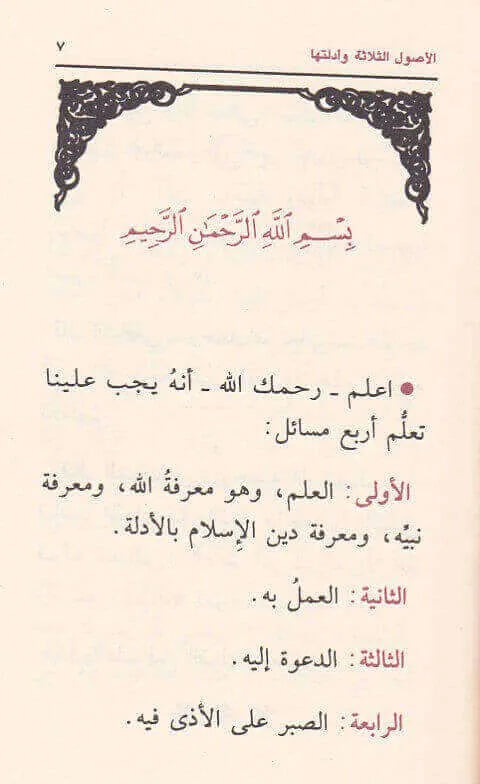 الأصول الثلاثة وأدلتها ٧
بِسْمِ ٱللَّهِ ٱلرَّحْمَٰنِ ٱلرَّحِيمِ
• اعلم ـ رحمك الله ـ أنهُ يجب علينا
تعلُّم أربع مسائل:
الأولى: العلم، وهو معرفةُ الله، ومعرفة
نبيِّه، ومعرفة دين الإِسلام بالأدلة.
الثانية: العملُ به.
الثالثة: الدعوة إليه.
الرابعة: الصبر على الأذى فيه.